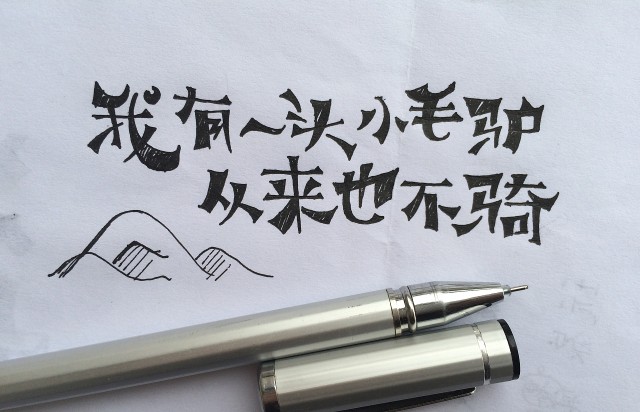 我有一头小毛驴
从来也不骑